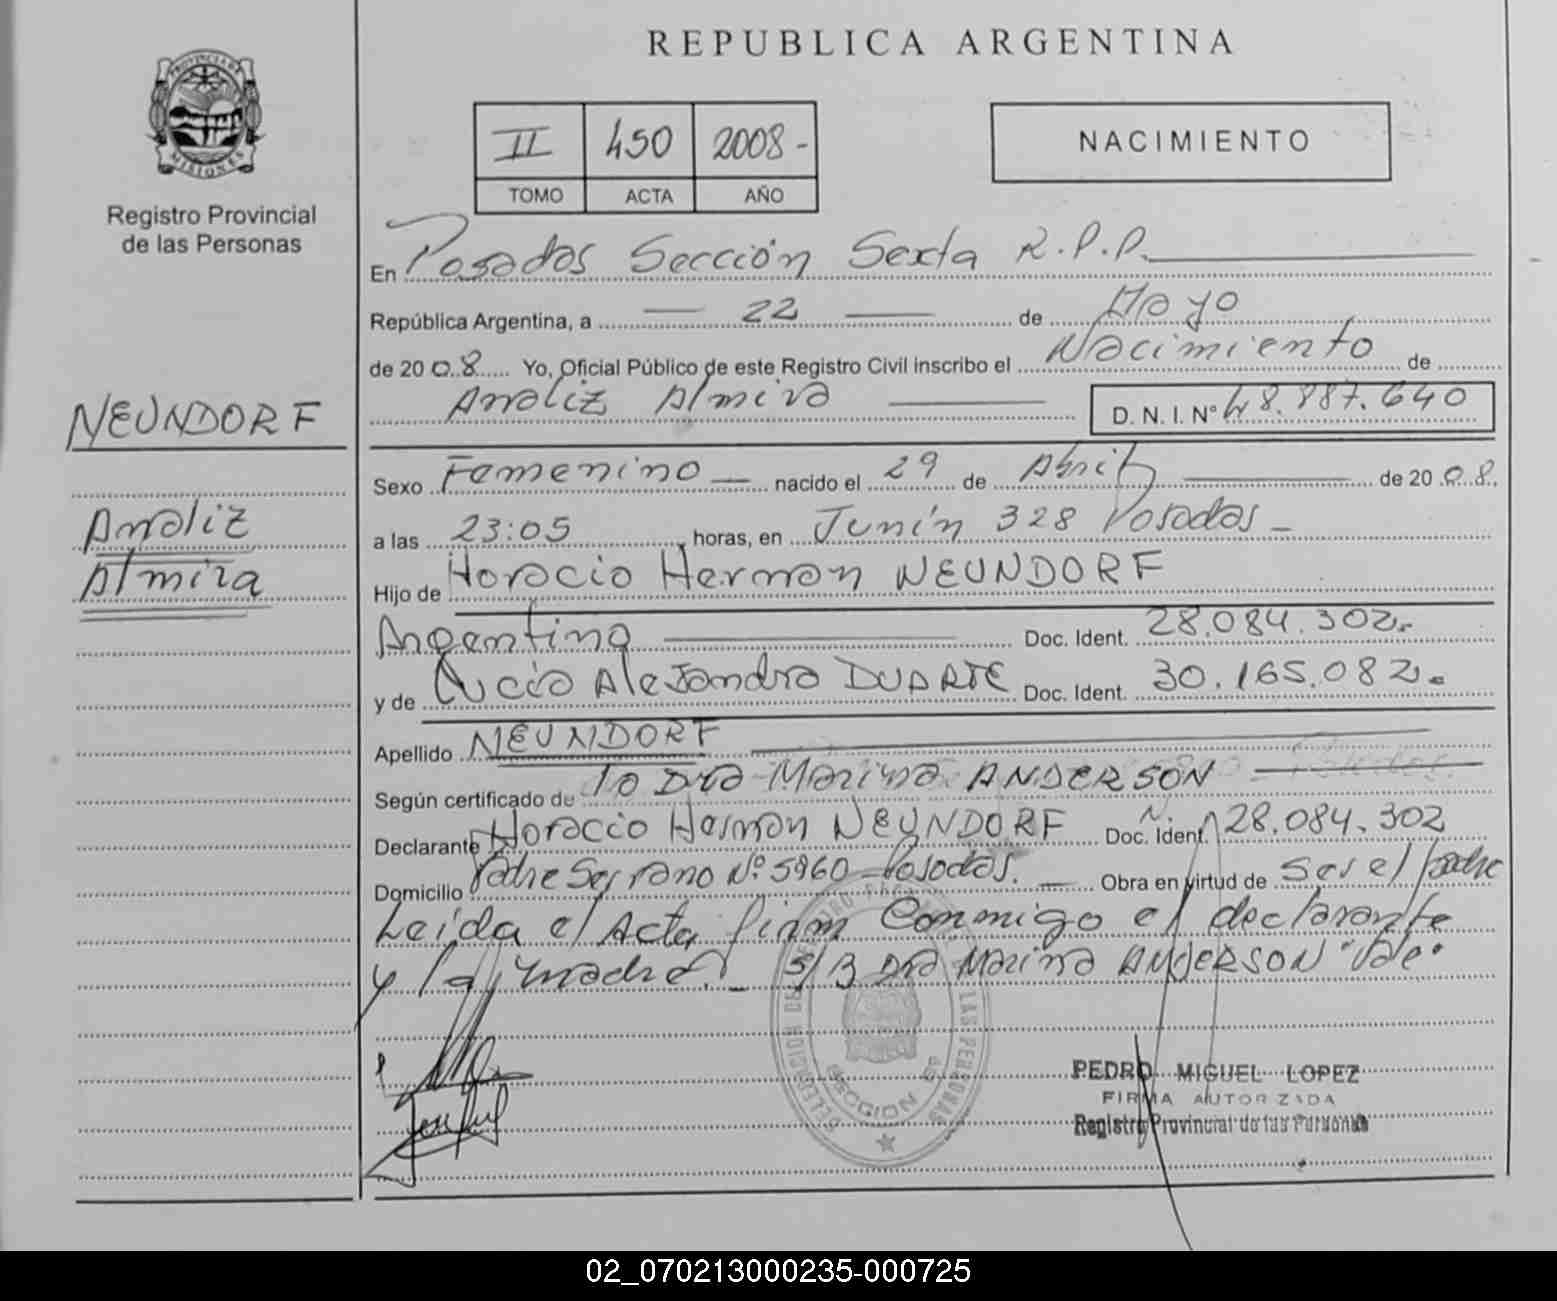 REPUBLICA ARGENTINA
PROVINCIA DE
MISIONES
Registro Provincial
de las Personas
II 450 2008-
TOMO ACTA AÑO
NACIMIENTO
En Posadas Sección Sexta R.P.P.
República Argentina, a 22 de Mayo
de 2008 Yo, Oficial Público de este Registro Civil inscribo el Nacimiento de
Analiz Almira D. N. I. Nº 48.887.640
NEUNDORF
Analiz
Almira
Sexo Femenino nacido el 29 de Abril de 2008.
a las 23:05 horas, en Junín 328 Posadas
Hijo de Horacio Hernan NEUNDORF
Argentina Doc. Ident. 28.084.302.
y de Lucía Alejandra DUARTE Doc. Ident. 30.165.082.
Apellido NEUNDORF
Según certificado de la Dra Marina ANDERSON
Declarante Horacio Hernan NEUNDORF Doc. Ident. 28.084.302
Domicilio Padre Serrano Nº 5960 Posadas. Obra en virtud de Ser el padre
Leída el Acta firm Conmigo el declarante
y la madre. S/B Dra Marina ANDERSON "Vale"
PEDRO MIGUEL LOPEZ
FIRMA AUTORIZADA
Registro Provincial de las Personas
02_070213000235-000725